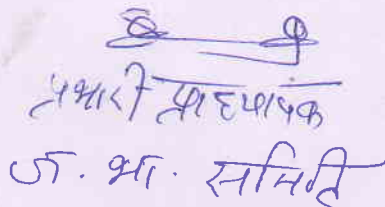 प्रभारी प्राध्यापक
ज. भा. समिति